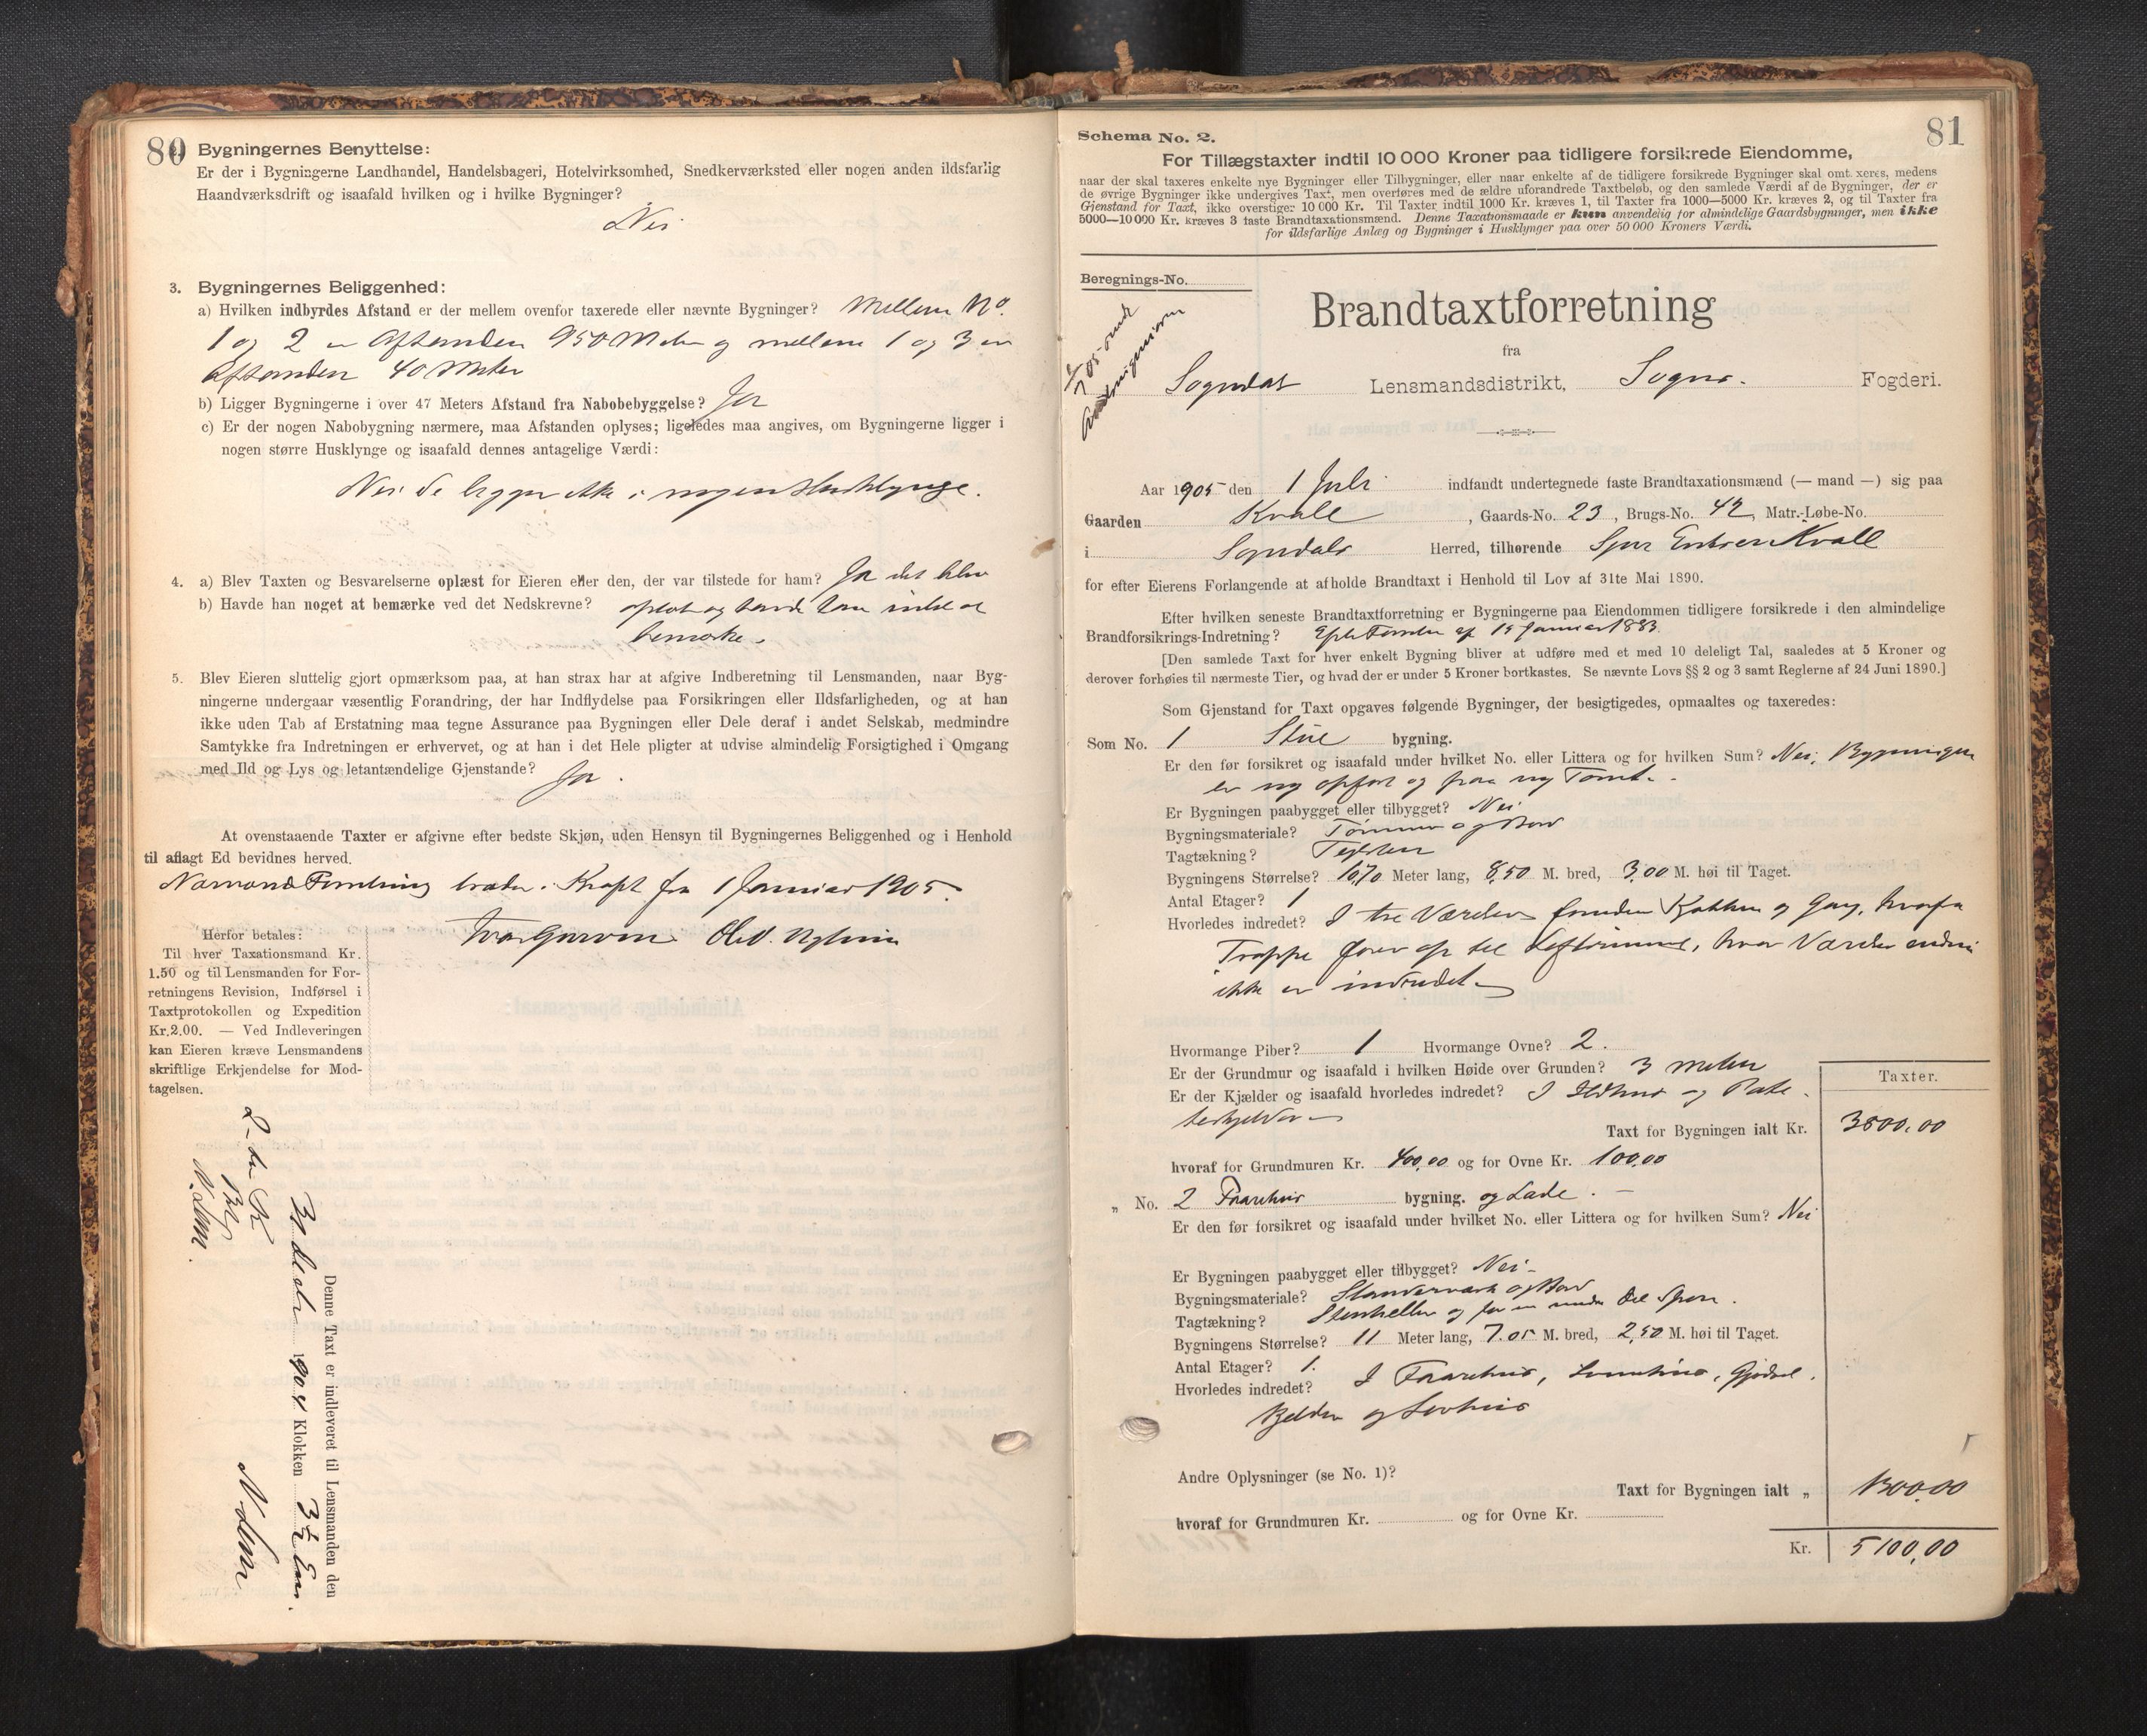 80
2. Bygningernes Benyttelse:
Er der i Bygningerne Landhandel, Handelsbageri, Hotelvirksomhed, Snedkerværksted eller nogen anden ildsfarlig
Haandværksdrift og isaafald hvilken og i hvilke Bygninger?
Nei
3. Bygningernes Beliggenhed:
a) Hvilken indbyrdes Afstand er der mellem ovenfor taxerede eller nævnte Bygninger? Mellem No.
1 og 2 er Afstanden 950 Meter og mellem 1 og 3 er
Afstanden 40 Meter
b) Ligger Bygningerne i over 47 Meters Afstand fra Nabobebyggelse? Ja
c) Er der nogen Nabobygning nærmere, maa Afstanden oplyses; ligeledes maa angives, om Bygningerne ligger i
nogen større Husklynge og isaafald dennes antagelige Værdi:
Nei de ligger ikke i nogen Husklynge.
4. a) Blev Taxten og Besvarelserne oplæst for Eieren eller den, der var tilstede for ham? Ja det blev
b) Havde han noget at bemærke ved det Nedskrevne? oplæst og havde han intet at
bemærke.
5. Blev Eieren sluttelig gjort opmærksom paa, at han strax har at afgive Indberetning til Lensmanden, naar Byg-
ningerne undergaar væsentlig Forandring, der har Indflydelse paa Forsikringen eller Ildsfarligheden, og at han
ikke uden Tab af Erstatning maa tegne Assurance paa Bygningen eller Dele deraf i andet Selskab, medmindre
Samtykke fra Indretningen er erhvervet, og at han i det Hele pligter at udvise almindelig Forsigtighed i Omgang
med Ild og Lys og letantændelige Gjenstande? Ja.
At ovenstaaende Taxter er afgivne efter bedste Skjøn, uden Hensyn til Bygningernes Beliggenhed og i Henhold
til aflagt Ed bevidnes herved.
Nærværende Forretning træder i Kraft fra 1 Januar 1905.
Herfor betales:
Til hver Taxationsmand Kr.
1.50 og til Lensmanden for For-
retningens Revision, Indførsel i
Taxtprotokollen og Expedition
Kr. 2.00. — Ved Indleveringen
kan Eieren kræve Lensmandens
skriftlige Erkjendelse for Mod-
tagelsen.
Denne Taxt er indleveret til Lensmanden den
31 Decbr 1904 Klokken 3½ Em.
81
Schema No. 2.
For Tillægstaxter indtil 10 000 Kroner paa tidligere forsikrede Eiendomme,
naar der skal taxeres enkelte nye Bygninger eller Tilbygninger, eller naar enkelte af de tidligere forsikrede Bygninger skal omtaxeres, medens
de øvrige Bygninger ikke undergives Taxt, men overføres med de ældre uforandrede Taxtbeløb, og den samlede Værdi af de Bygninger, der er
Gjenstand for Taxt, ikke overstiger 10 000 Kr. Til Taxter indtil 1000 Kr. kræves 1, til Taxter fra 1000—5000 Kr. kræves 2, og til Taxter fra
5000—10 000 Kr. kræves 3 faste Brandtaxationsmænd. Denne Taxationsmaade er kun anvendelig for almindelige Gaardsbygninger, men ikke
for ildsfarlige Anlæg og Bygninger i Husklynger paa over 50 000 Kroners Værdi.
Beregnings-No.
Brandtaxtforretning
fra
Sogndal Lensmandsdistrikt, Sogns. Fogderi.
Aar 1905 den 1 Juli indfandt undertegnede faste Brandtaxationsmænd (— mand —) sig paa
Gaarden Kvale, Gaards-No. 23, Brugs-No. 42, Matr.-Løbe-No.
i Sogndals Herred, tilhørende Sjur Kvale
for efter Eierens Forlangende at afholde Brandtaxt i Henhold til Lov af 31te Mai 1890.
Efter hvilken seneste Brandtaxtforretning er Bygningerne paa Eiendommen tidligere forsikrede i den almindelige
Brandforsikrings-Indretning? Januar 1883.
[Den samlede Taxt for hver enkelt Bygning bliver at udføre med et med 10 deleligt Tal, saaledes at 5 Kroner og
derover forhøies til nærmeste Tier, og hvad der er under 5 Kroner bortkastes. Se nævnte Lovs §§ 2 og 3 samt Reglerne af 24 Juni 1890.]
Som Gjenstand for Taxt opgaves følgende Bygninger, der besigtigedes, opmaaltes og taxeredes:
Som No. 1 Stue bygning.
Er den før forsikret og isaafald under hvilket No. eller Littera og for hvilken Sum? Nei, Bygningen
er ny opført og paa ny Tomt.
Er Bygningen paabygget eller tilbygget? Nei
Bygningsmateriale? Tømmer og Bord
Tagtækning? Teglsten
Bygningens Størrelse? 10,70 Meter lang, 8,50 M. bred, 3,00 M. høi til Taget.
Antal Etager? 1
Hvorledes indredet? I tre Værelser foruden Kjøkken og Gang, hvorfra
Trappe fører op til Loftrummet, hvor Værelser endnu
ikke er indredet.
Hvormange Piber? 1 Hvormange Ovne? 2.
Er der Grundmur og isaafald i hvilken Høide over Grunden? 3 meter
Er der Kjælder og isaafald hvorledes indredet? I Ildhus og Pote-
teskjelder
Taxter.
Taxt for Bygningen ialt Kr. 3800,00
hvoraf for Grundmuren Kr. 400,00 og for Ovne Kr. 100,00
„ No. 2 Faarehus bygning. og Lade.
Er den før forsikret og isaafald under hvilket No. eller Littera og for hvilken Sum? Nei
Er Bygningen paabygget eller tilbygget? Nei
Bygningsmateriale? Standerværk og Bord
Tagtækning? Stenheller og for en mindre Del Spon.
Bygningens Størrelse? 11 Meter lang, 7.05 M. bred, 2,50 M. høi til Taget.
Antal Etager? 1.
Hvorledes indredet? I Faarehus, Gjødsel-
kjelder og Løvhus
Andre Oplysninger (se No. 1)?
Taxt for Bygningen ialt „ 1300,00
hvoraf for Grundmuren Kr. og for Ovne Kr.
Kr. 5100,00